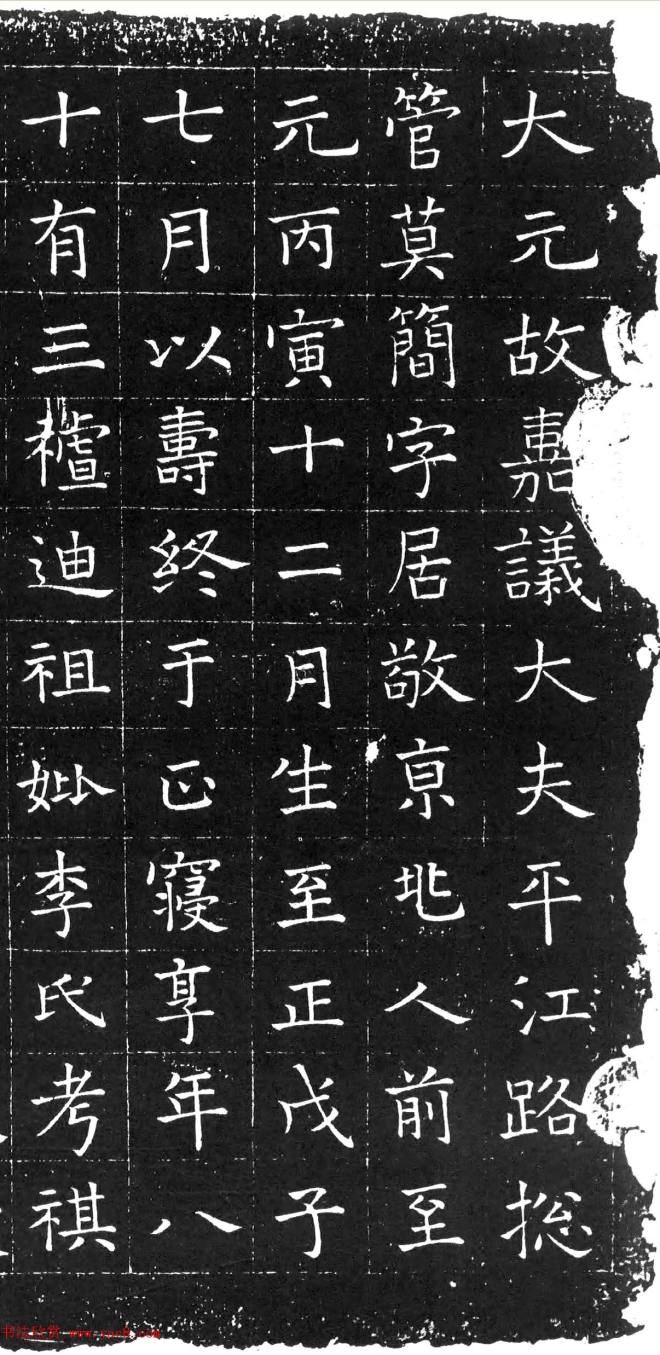 大元故嘉議大夫平江路捴
管莫簡字居敬京兆人前至
元丙寅十二月生至正戊子
七月以壽終于正寢享年八
十有三迪祖妣李氏考祺
书法欣赏 www.yac8.com